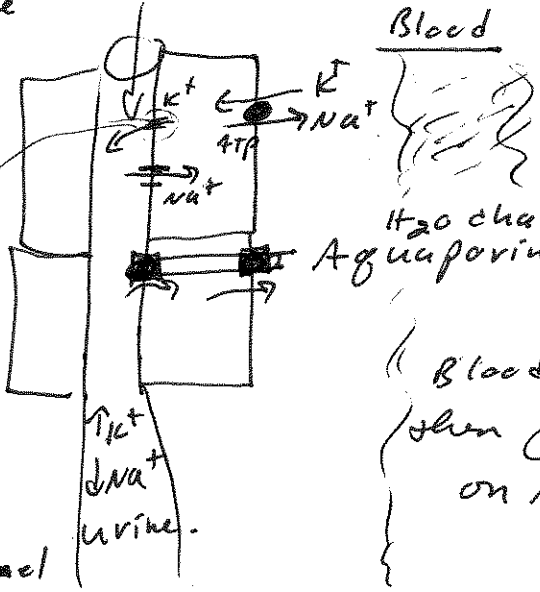 Blood
K⁺
K⁺
Na⁺
ATP
Na⁺
H₂O cha
Aquaporin
Blood
then
on
↑K⁺
↓Na⁺
urine.
nel